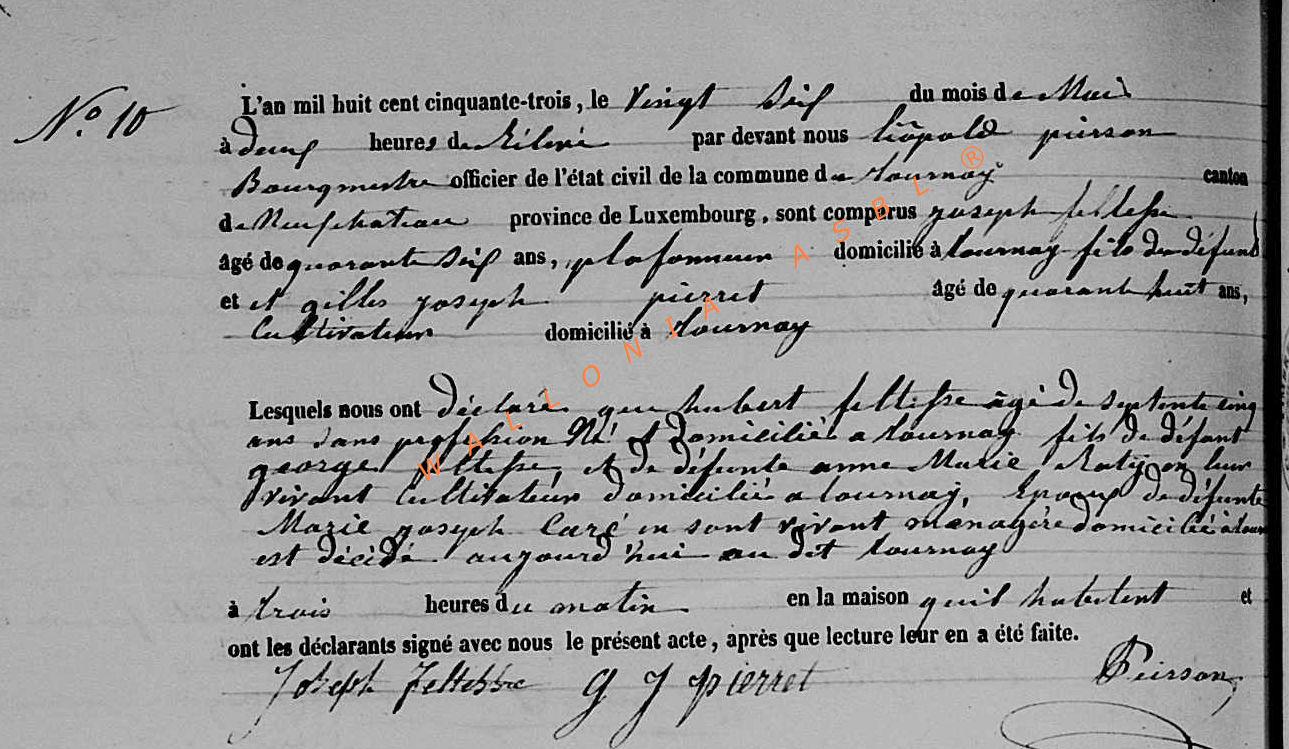 N.º 10
L'an mil huit cent cinquante-trois, le Vingt Six du mois de Mai
à deux heures de Relevé par devant nous Léopold pierson
Bourgmestre officier de l'état civil de la commune de tournay canton
de Neufchateau province de Luxembourg, sont comparus joseph feltesse
âgé de quarante Six ans, plafonneur domicilié à tournay fils du défunt
et et gilles joseph pierret âgé de quarante huit ans,
Cultivateur domicilié à tournay
Lesquels nous ont déclaré que hubert feltesse âgé de septante cinq
ans sans profession Né et Domicilié a tournay fils de défunt
george feltesse, et de défunte anne Marie Raty en leur
vivant Cultivateur domicilié a tournay, Epoux de défunte
Marie joseph Caré en sont vivant ménagère domicilié à tour
est décédé aujourd'hui au dit tournay
à trois heures du matin en la maison quil habitent et
ont les déclarants signé avec nous le présent acte, après que lecture leur en a été faite.
Joseph Feltesse G J pierret Pierson
WALLONIA ASBL ®